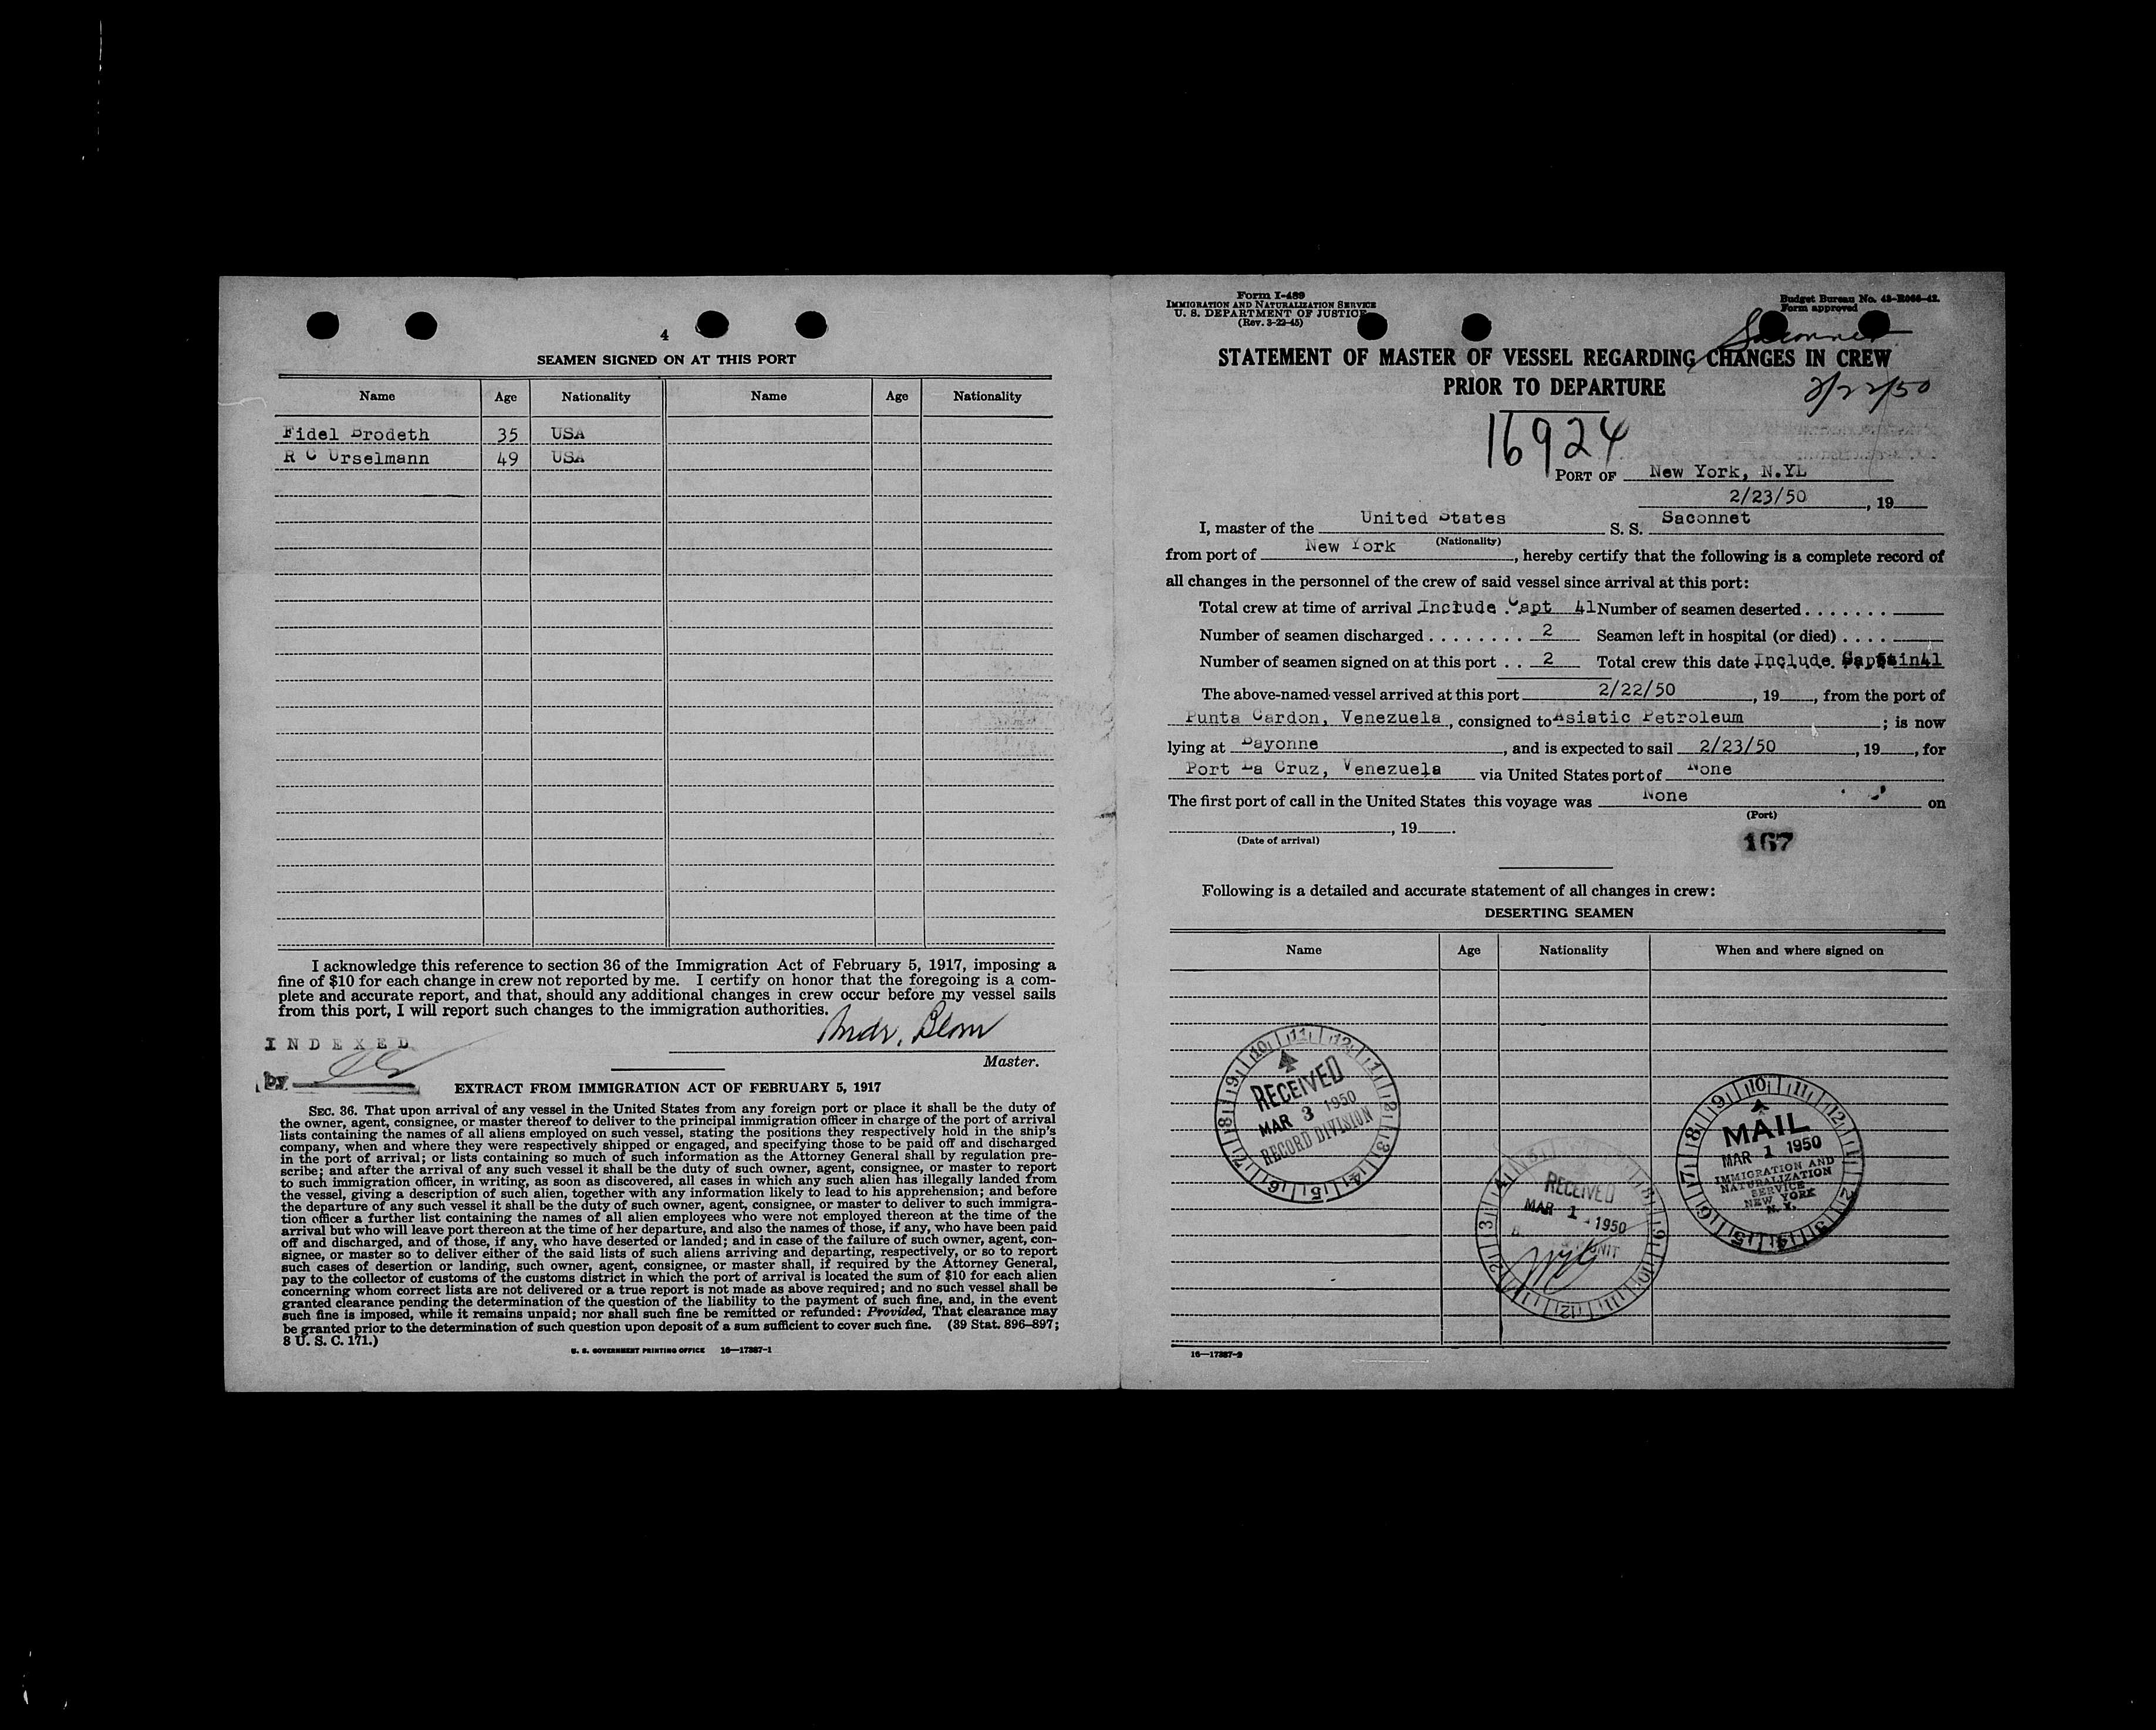 4
SEAMEN SIGNED ON AT THIS PORT
Name Age Nationality Name Age Nationality
Fidel Brodeth 35 USA
R C Urselmann 49 USA
I acknowledge this reference to section 36 of the Immigration Act of February 5, 1917, imposing a
fine of $10 for each change in crew not reported by me. I certify on honor that the foregoing is a com-
plete and accurate report, and that, should any additional changes in crew occur before my vessel sails
from this port, I will report such changes to the immigration authorities.
Andr. Blom
Master.
INDEXED
by
EXTRACT FROM IMMIGRATION ACT OF FEBRUARY 5, 1917
SEC. 36. That upon arrival of any vessel in the United States from any foreign port or place it shall be the duty of
the owner, agent, consignee, or master thereof to deliver to the principal immigration officer in charge of the port of arrival
lists containing the names of all aliens employed on such vessel, stating the positions they respectively hold in the ship's
company, when and where they were respectively shipped or engaged, and specifying those to be paid off and discharged
in the port of arrival; or lists containing so much of such information as the Attorney General shall by regulation pre-
scribe; and after the arrival of any such vessel it shall be the duty of such owner, agent, consignee, or master to report
to such immigration officer, in writing, as soon as discovered, all cases in which any such alien has illegally landed from
the vessel, giving a description of such alien, together with any information likely to lead to his apprehension; and before
the departure of any such vessel it shall be the duty of such owner, agent, consignee, or master to deliver to such immigra-
tion officer a further list containing the names of all alien employees who were not employed thereon at the time of the
arrival but who will leave port thereon at the time of her departure, and also the names of those, if any, who have been paid
off and discharged, and of those, if any, who have deserted or landed; and in case of the failure of such owner, agent, con-
signee, or master so to deliver either of the said lists of such aliens arriving and departing, respectively, or so to report
such cases of desertion or landing, such owner, agent, consignee, or master shall, if required by the Attorney General,
pay to the collector of customs of the customs district in which the port of arrival is located the sum of $10 for each alien
concerning whom correct lists are not delivered or a true report is not made as above required; and no such vessel shall be
granted clearance pending the determination of the question of the liability to the payment of such fine, and, in the event
such fine is imposed, while it remains unpaid; nor shall such fine be remitted or refunded: Provided, That clearance may
be granted prior to the determination of such question upon deposit of a sum sufficient to cover such fine. (39 Stat. 896-897;
8 U. S. C. 171.)
U. S. GOVERNMENT PRINTING OFFICE 16—17387-1
Form I-489
IMMIGRATION AND NATURALIZATION SERVICE
U. S. DEPARTMENT OF JUSTICE
(Rev. 3-22-45)
Budget Bureau No. 43-R066-42.
Form approved
Saconnet
STATEMENT OF MASTER OF VESSEL REGARDING CHANGES IN CREW
PRIOR TO DEPARTURE
2/22/50
16924
PORT OF New York, N.YL
2/23/50, 19
I, master of the United States S. S. Saconnet
(Nationality)
from port of New York, hereby certify that the following is a complete record of
all changes in the personnel of the crew of said vessel since arrival at this port:
Total crew at time of arrival Include Capt 41 Number of seamen deserted . . . . . . .
Number of seamen discharged . . . . . . . . 2 Seamen left in hospital (or died) . . . .
Number of seamen signed on at this port . . 2 Total crew this date Include Captain 41
The above-named vessel arrived at this port 2/22/50, 19, from the port of
Punta Cardon, Venezuela, consigned to Asiatic Petroleum; is now
lying at Bayonne, and is expected to sail 2/23/50, 19, for
Port La Cruz, Venezuela via United States port of None
The first port of call in the United States this voyage was None on
(Port)
, 19.
(Date of arrival)
167
Following is a detailed and accurate statement of all changes in crew:
DESERTING SEAMEN
Name Age Nationality When and where signed on
RECEIVED
MAR 3 1950
RECORD DIVISION
RECEIVED
MAR 1 - 1950
UNIT
MAIL
MAR 1 1950
IMMIGRATION AND
NATURALIZATION
SERVICE
NEW YORK
N. Y.
16—17387-2